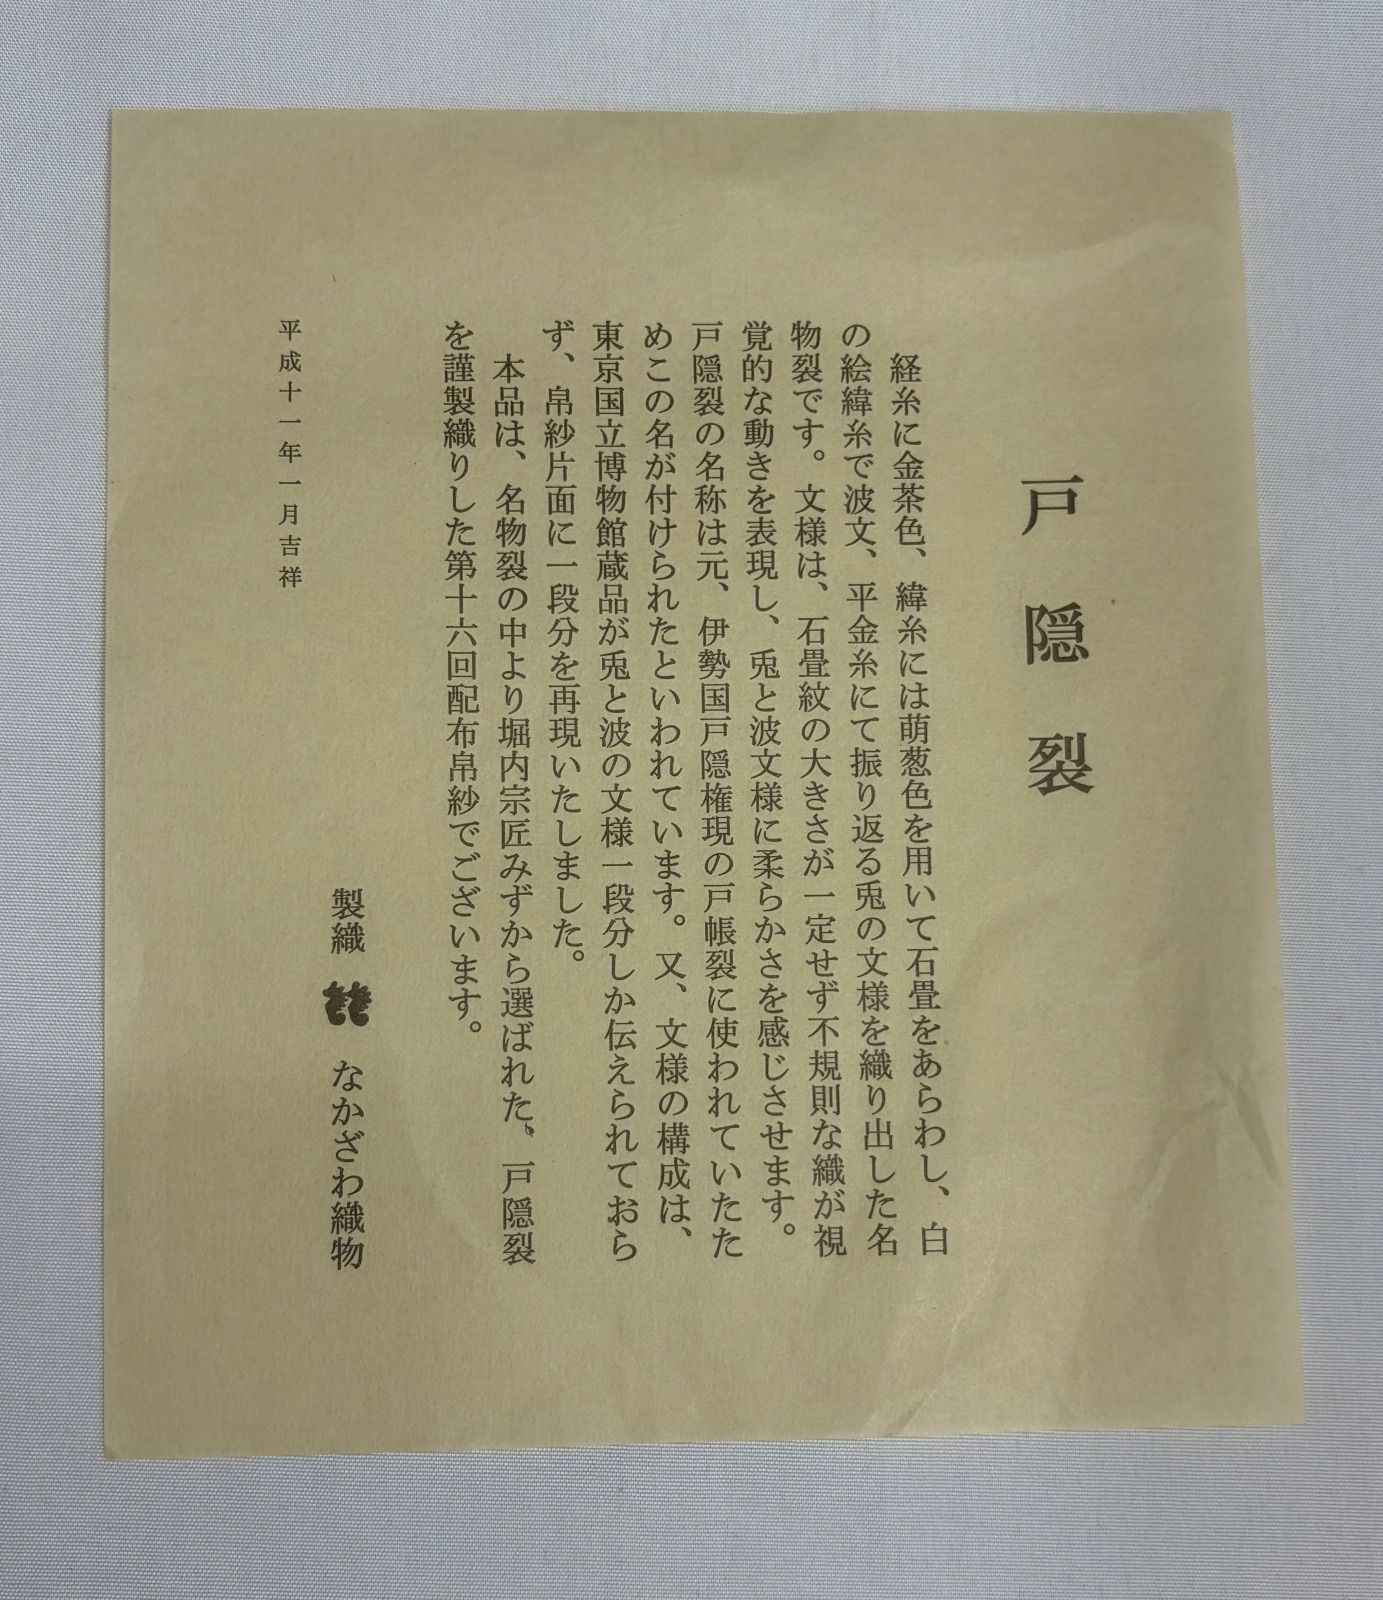 戸隠裂
経糸に金茶色、緯糸には萌葱色を用いて石畳をあらわし、白
の絵緯糸で波文、平金糸にて振り返る兎の文様を織り出した名
物裂です。文様は、石畳紋の大きさが一定せず不規則な織が視
覚的な動きを表現し、兎と波文様に柔らかさを感じさせます。
戸隠裂の名称は元、伊勢国戸隠権現の戸帳裂に使われていたた
めこの名が付けられたといわれています。又、文様の構成は、
東京国立博物館蔵品が兎と波の文様一段分しか伝えられておら
ず、帛紗片面に一段分を再現いたしました。
本品は、名物裂の中より堀内宗匠みずから選ばれた、戸隠裂
を謹製織りした第十六回配布帛紗でございます。
製織 なかざわ織物
平成十一年一月吉祥